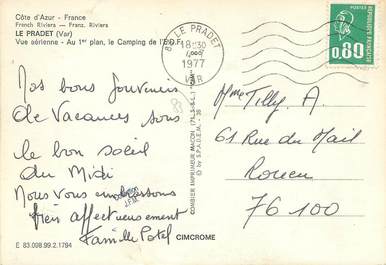 Côte d'Azur - France
French Riviera - Franz. Riviera
LE PRADET (Var)
Vue aérienne - Au 1er plan, le Camping de l'E.D.F.
83 LE PRADET
18H30
1977
VAR
RÉPUBLIQUE FRANÇAISE
POSTES
0,80
Nos bons souvenirs
de Vacances sous
le bon soleil
du Midi
Nous vous embrassons
bien affectueusement
Famille Patel
COMBIER IMPRIMEUR MACON (71, S.-&-L.)
© by S.P.A.D.E.M. - 36
Mme Tilly. A.
61 Rue du Mail
Rouen
76100
E 83.098.99.2.1794
CIMCROME